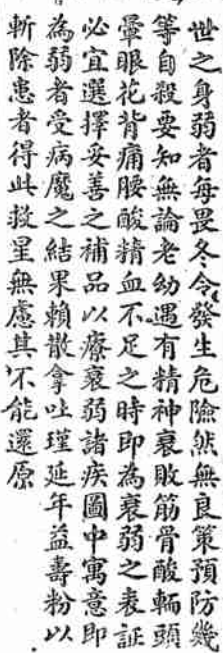 世之身弱者每畏冬令發生危險然無良策預防幾
等自殺要知無論老幼遇有精神衰敗筋骨酸輭頭
暈眼花背痛腰酸精血不足之時即為衰弱之表証
必宜選擇妥善之補品以療衰弱諸疾圖中寓意即
為弱者受病魔之結果賴散拿吐瑾延年益壽粉以
斬除患者得此救星無慮其不能還原